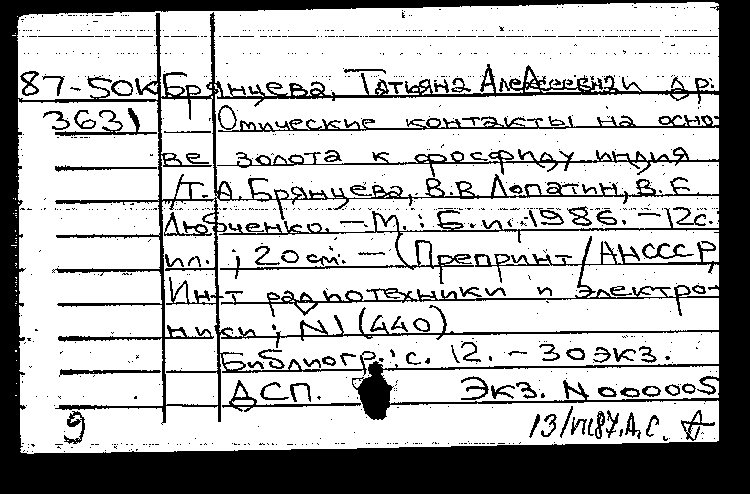 87-50К Брянцева, Татьяна Алексеевна и др.
3631 Омические контакты на осно-
ве золота к фосфиду индия
/Т. А. Брянцева, В.В. Лопатин, В. Е.
Любченко. — М. : Б.и., 1986. — 12с.:
ил. ; 20 см. — (Препринт / АНСССР,
Ин-т радиотехники и электро-
ники ; N1 (440).
Библиогр.: с. 12. - 30 экз.
ДСП. Экз. N 000005
9 13/VII87. А. С.